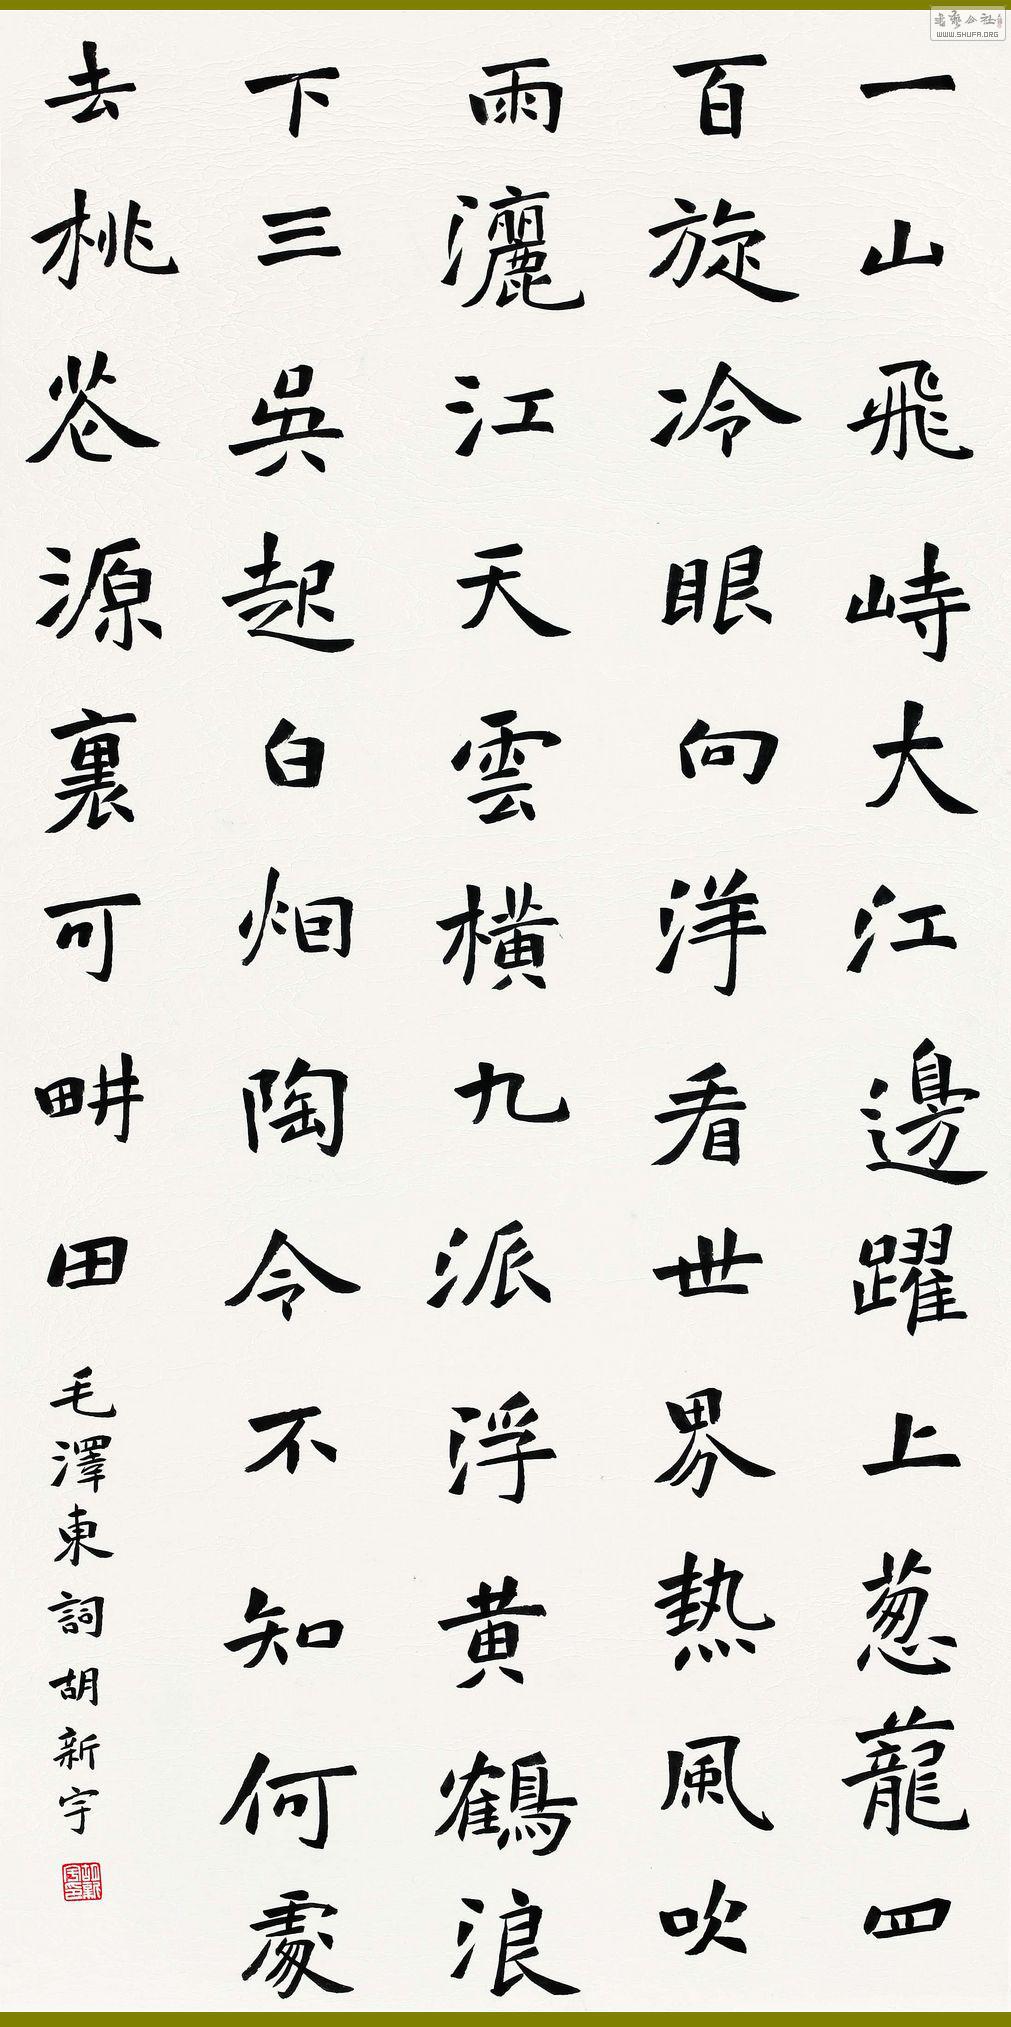 一山飛峙大江邊躍上葱蘢四
百旋冷眼向洋看世界熱風吹
雨灑江天雲橫九派浮黃鶴浪
下三吳起白烟陶令不知何處
去桃花源裏可畊田
毛澤東詞胡新宇
WWW.SHUFA.ORG